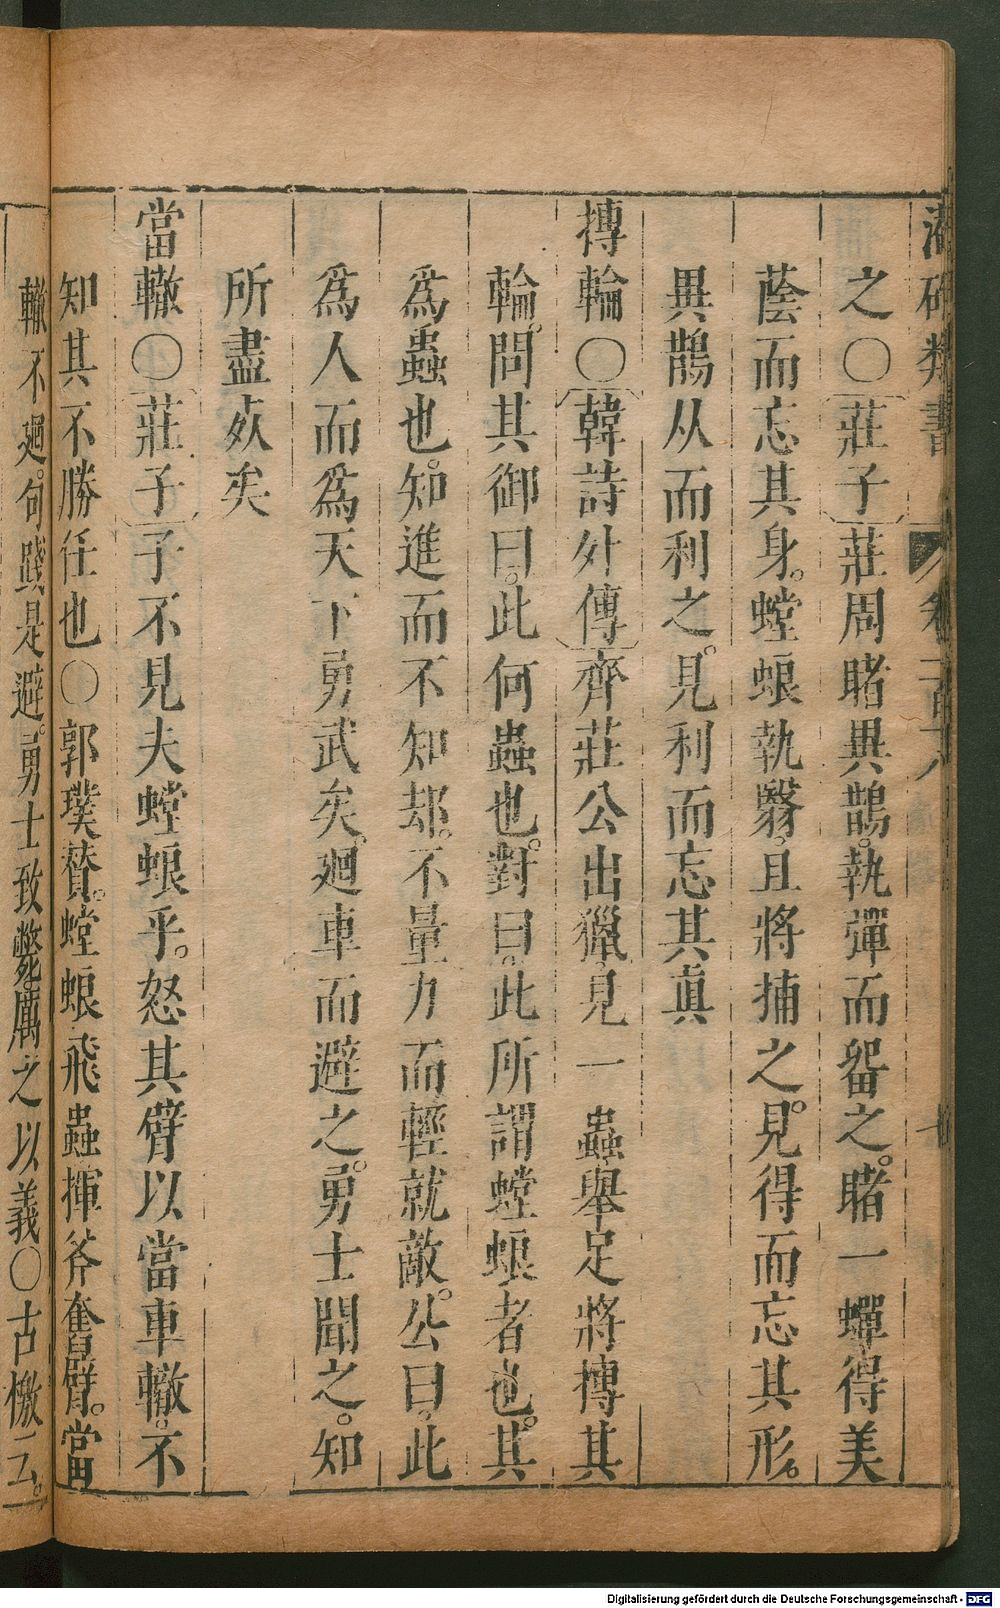 之〇莊子莊周睹異鵲執彈而留之睹一蟬得美
蔭而忘其身螳蜋執翳且將捕之見得而忘其形
異鵲从而利之見利而忘其真
摶輪〇韓詩外傳齊莊公出獵見一蟲舉足將摶其
輪問其御曰此何蟲也對曰此所謂螳蜋者也其
爲蟲也知進而不知却不量力而輕就敵公曰此
爲人而爲天下勇武矣廻車而避之勇士聞之知
所盡死矣
當轍〇莊子子不見夫螳蜋乎怒其臂以當車轍不
知其不勝任也〇郭璞贊螳蜋飛蟲揮斧奮臂當
轍不廻句踐是避勇士致斃厲之以義〇古檄云
Digitalisierung gefördert durch die Deutsche Forschungsgemeinschaft - DFG